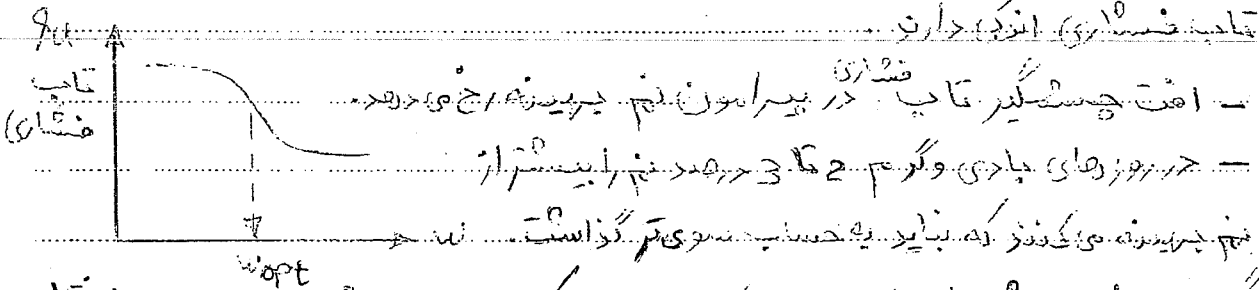 تاب فشاری اندکی دارند
qu
تاب
فشاری
- افت چشمگیر تاب فشاری در پیرامون نم بهینه رخ می دهد.
- در روزهای بادی و گرم 2 تا 3 درصد نم را بیشتر از
نم بهینه می کنند که نباید به حساب سوی تر گذاشت.
w
wopt